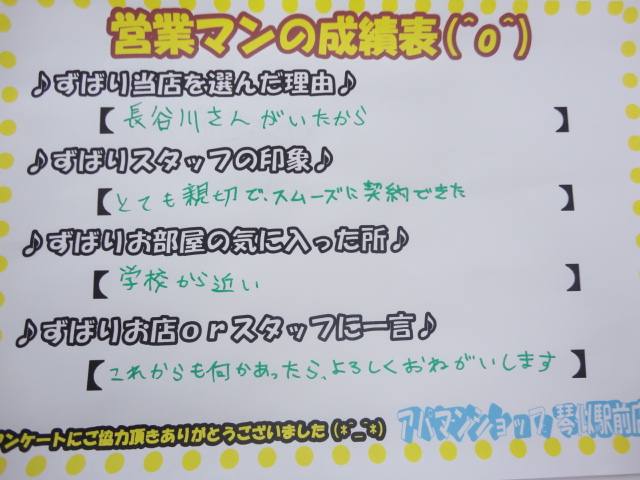 営業マンの成績表(^o^)
♪ずばり当店を選んだ理由♪
【長谷川さんがいたから】
♪ずばりスタッフの印象♪
【とても親切で、スムーズに契約できた】
♪ずばりお部屋の気に入った所♪
【学校から近い】
♪ずばりお店orスタッフに一言♪
【これからも何かあったら、よろしくおねがいします】
アンケートにご協力頂きありがとうございました(*^_^*)
アパマンショップ琴似駅前店